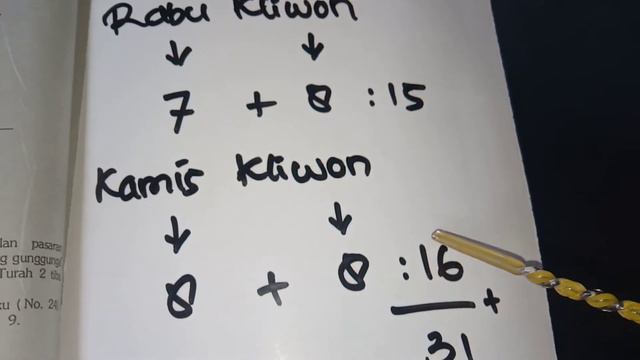 Rabu Kliwon
↓ ↓
7 + 8 : 15
Kamis Kliwon
↓ ↓
8 + 8 : 16
+
31
lan pasaran
g gunggung
Turah 2 tiba
ku (No. 24
9.